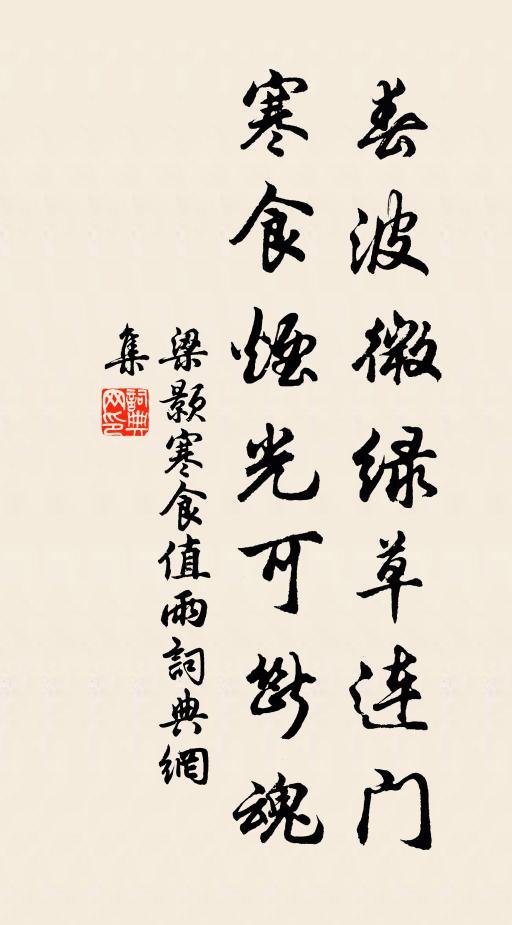 春波微绿草连门
寒食烟光可断魂
梁颢寒食值雨詞典網
集
詞典
网印